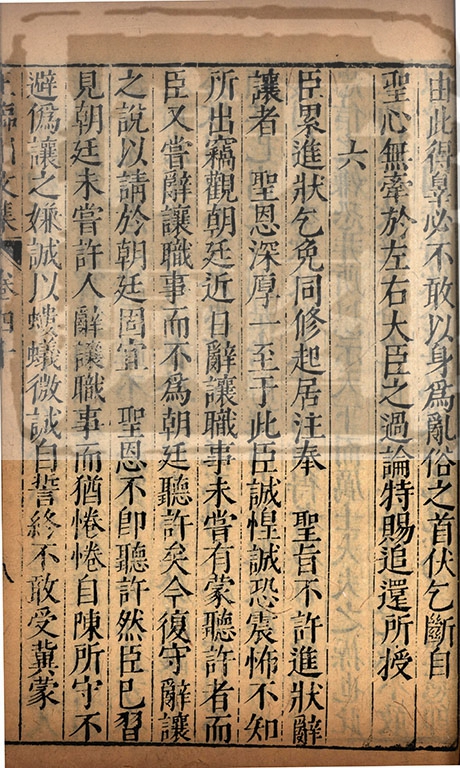 由此得辠必不敢以身爲亂俗之首伏乞斷自
聖心無牽於左右大臣之過論特賜追還所授
六
臣累進狀乞免同修起居注奉 聖旨不許進狀辭
讓者 聖恩深厚一至于此臣誠惶誠恐震怖不知
所出竊觀朝廷近日辭讓職事未嘗有蒙聽許者而
臣又嘗辭讓職事而不爲朝廷聽許矣今復守辭讓
之說以請於朝廷固宜 聖恩不卽聽許然臣已習
見朝廷未嘗許人辭讓職事而猶惓惓自陳所守不
避僞讓之嫌誠以螻蟻微誠自誓終不敢受冀蒙
臨川文集 卷四十 八